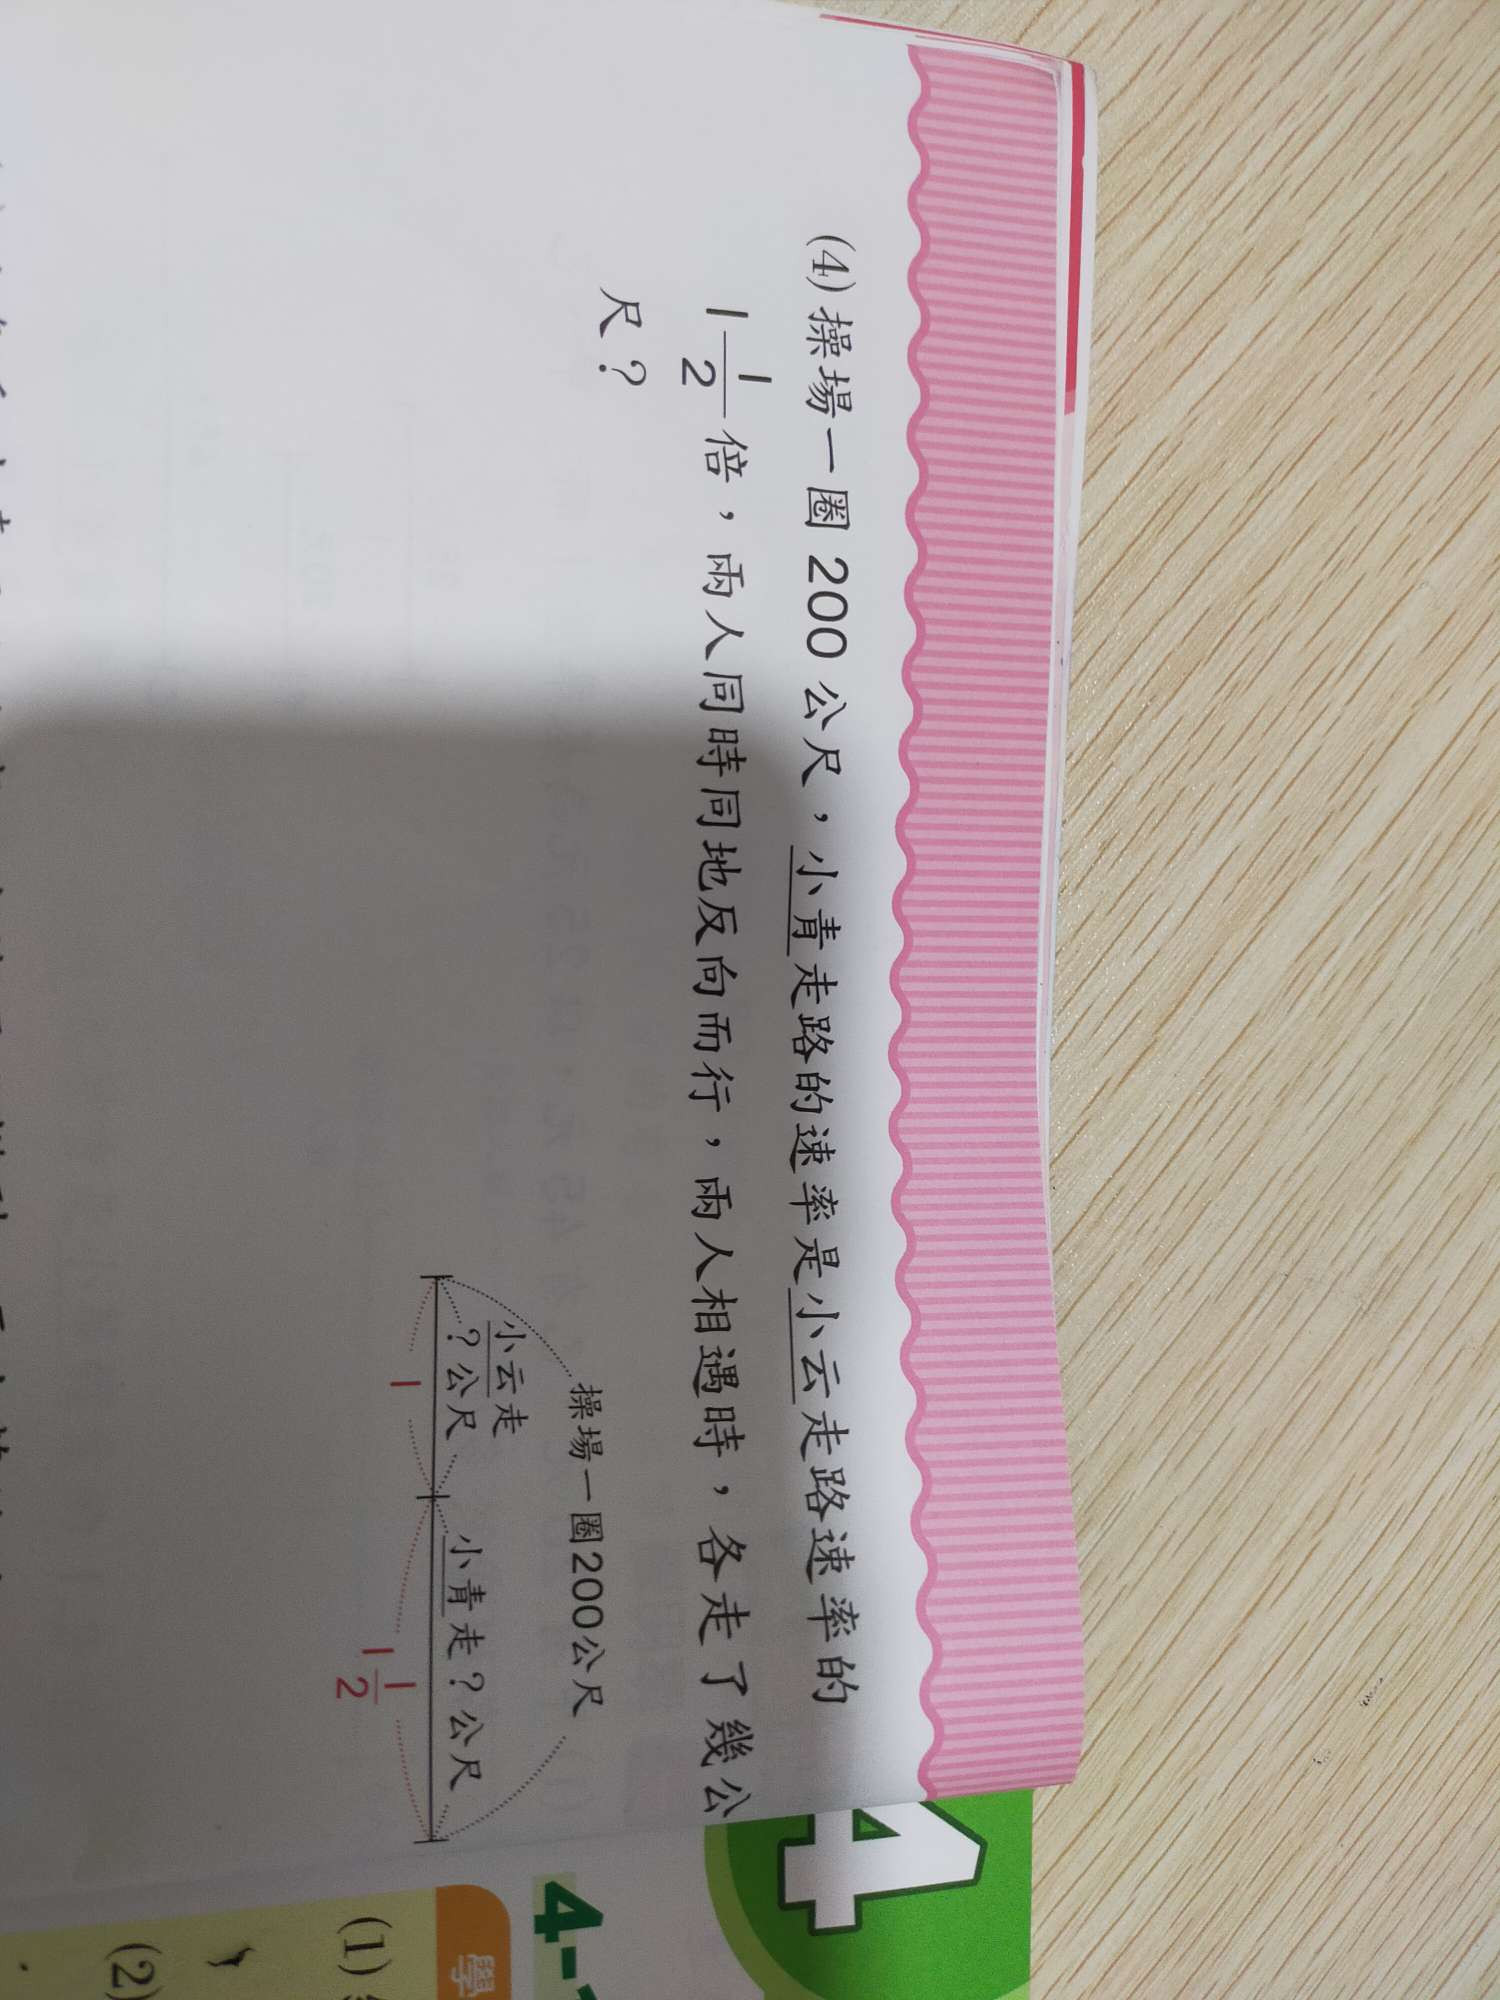 (4)操場一圈 200 公尺，小青走路的速率是小云走路速率的
1 1/2 倍，兩人同時同地反向而行，兩人相遇時，各走了幾公
尺？
操場一圈200公尺
小云走
？公尺
小青走？公尺
1
1 1/2
4
4-
學
(1)
(2)